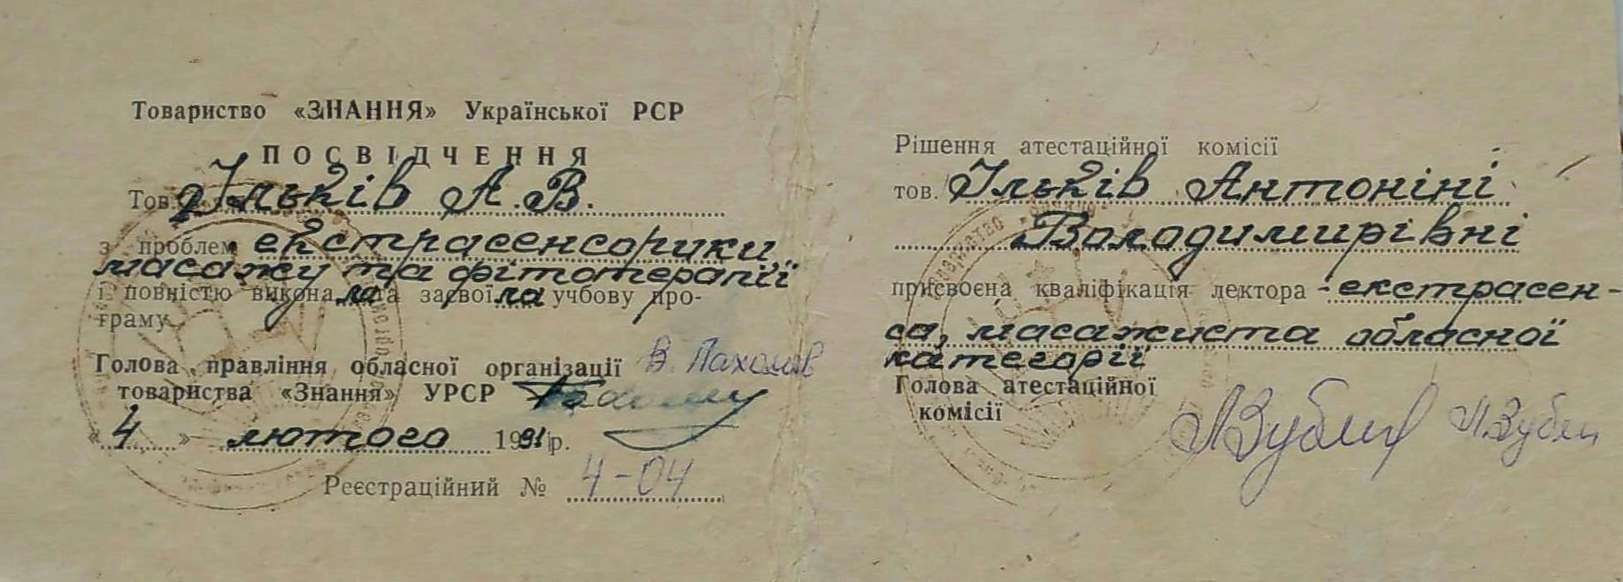 Товариство «ЗНАННЯ» Української РСР
ПОСВІДЧЕННЯ
Тов. Ільків А. В.
з проблем екстрасенсорики,
масажу та фітотерапії
і повністю виконала та засвоїла учбову про-
граму
Голова правління обласної організації В. Пахомов
товариства «Знання» УРСР
«4» лютого 1991 р.
Реєстраційний № 4-04
Рішення атестаційної комісії
тов. Ільків Антоніні
Володимирівні
присвоєна кваліфікація лектора - екстрасен-
са, масажиста обласної
категорії
Голова атестаційної
комісії